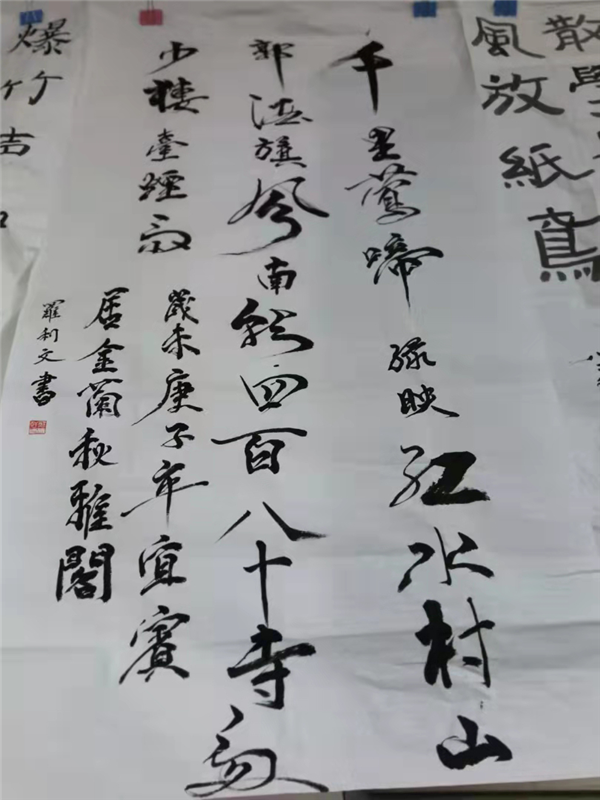 散學
風放紙鳶
千里鶯啼緑映红水村山
郭酒旗风南朝四百八十寺多
少樓臺煙雨
歲末庚子年宜賓
居金蘭秋雅閣
羅利文書
爆竹吉